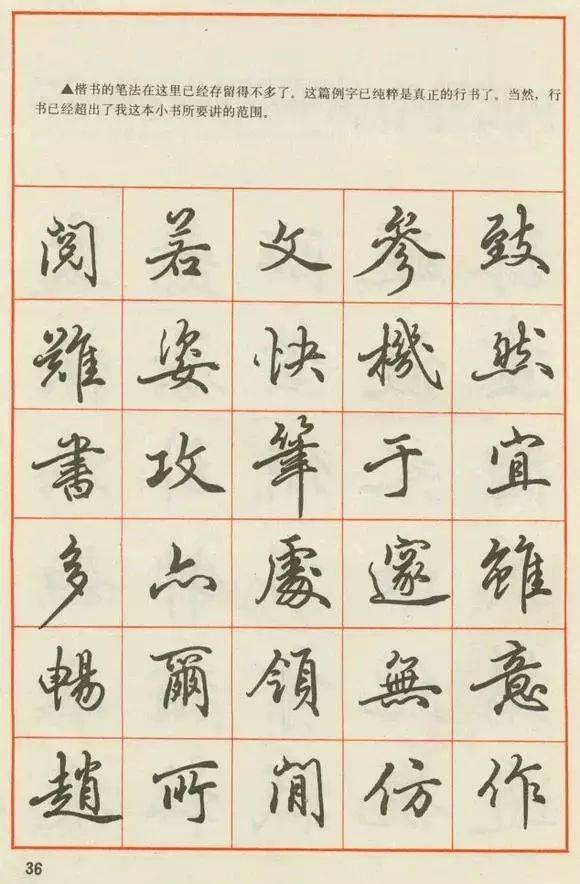 ▲楷书的笔法在这里已经存留得不多了。这篇例字已纯粹是真正的行书了。当然，行
书已经超出了我这本小书所要讲的范围。
閲 若 文 參 致
難 姿 快 機 然
書 攻 筆 于 宜
多 亦 處 邃 雖
暢 爾 領 無 意
趙 所 間 仿 作
36